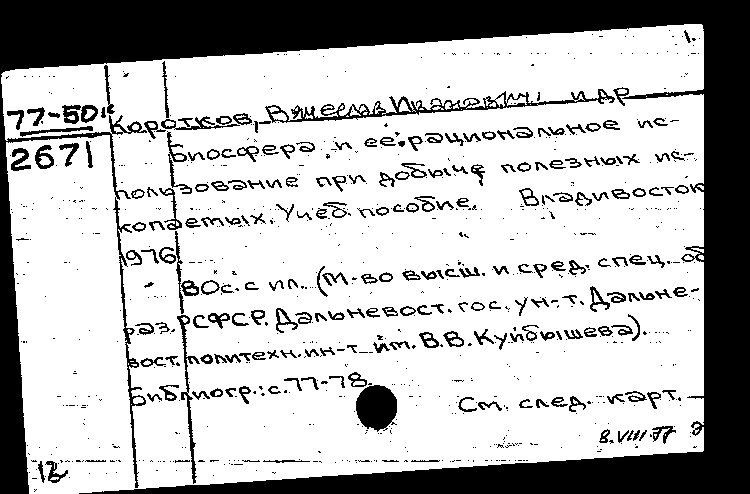 1.
77-50к Коротков, Вячеслав Иванович, и др
2671
Биосфера и ее рациональное ис-
пользование при добыче полезных ис-
копаемых. Учеб. пособие. Владивосток
1976.
80с. с ил. (М-во высш. и сред. спец. об
раз. РСФСР. Дальневост. гос. ун-т. Дальне-
вост. политехн. ин-т им. В.В. Куйбышева).
Библиогр.: с. 77-78.
См. след. карт.
8.VIII 77